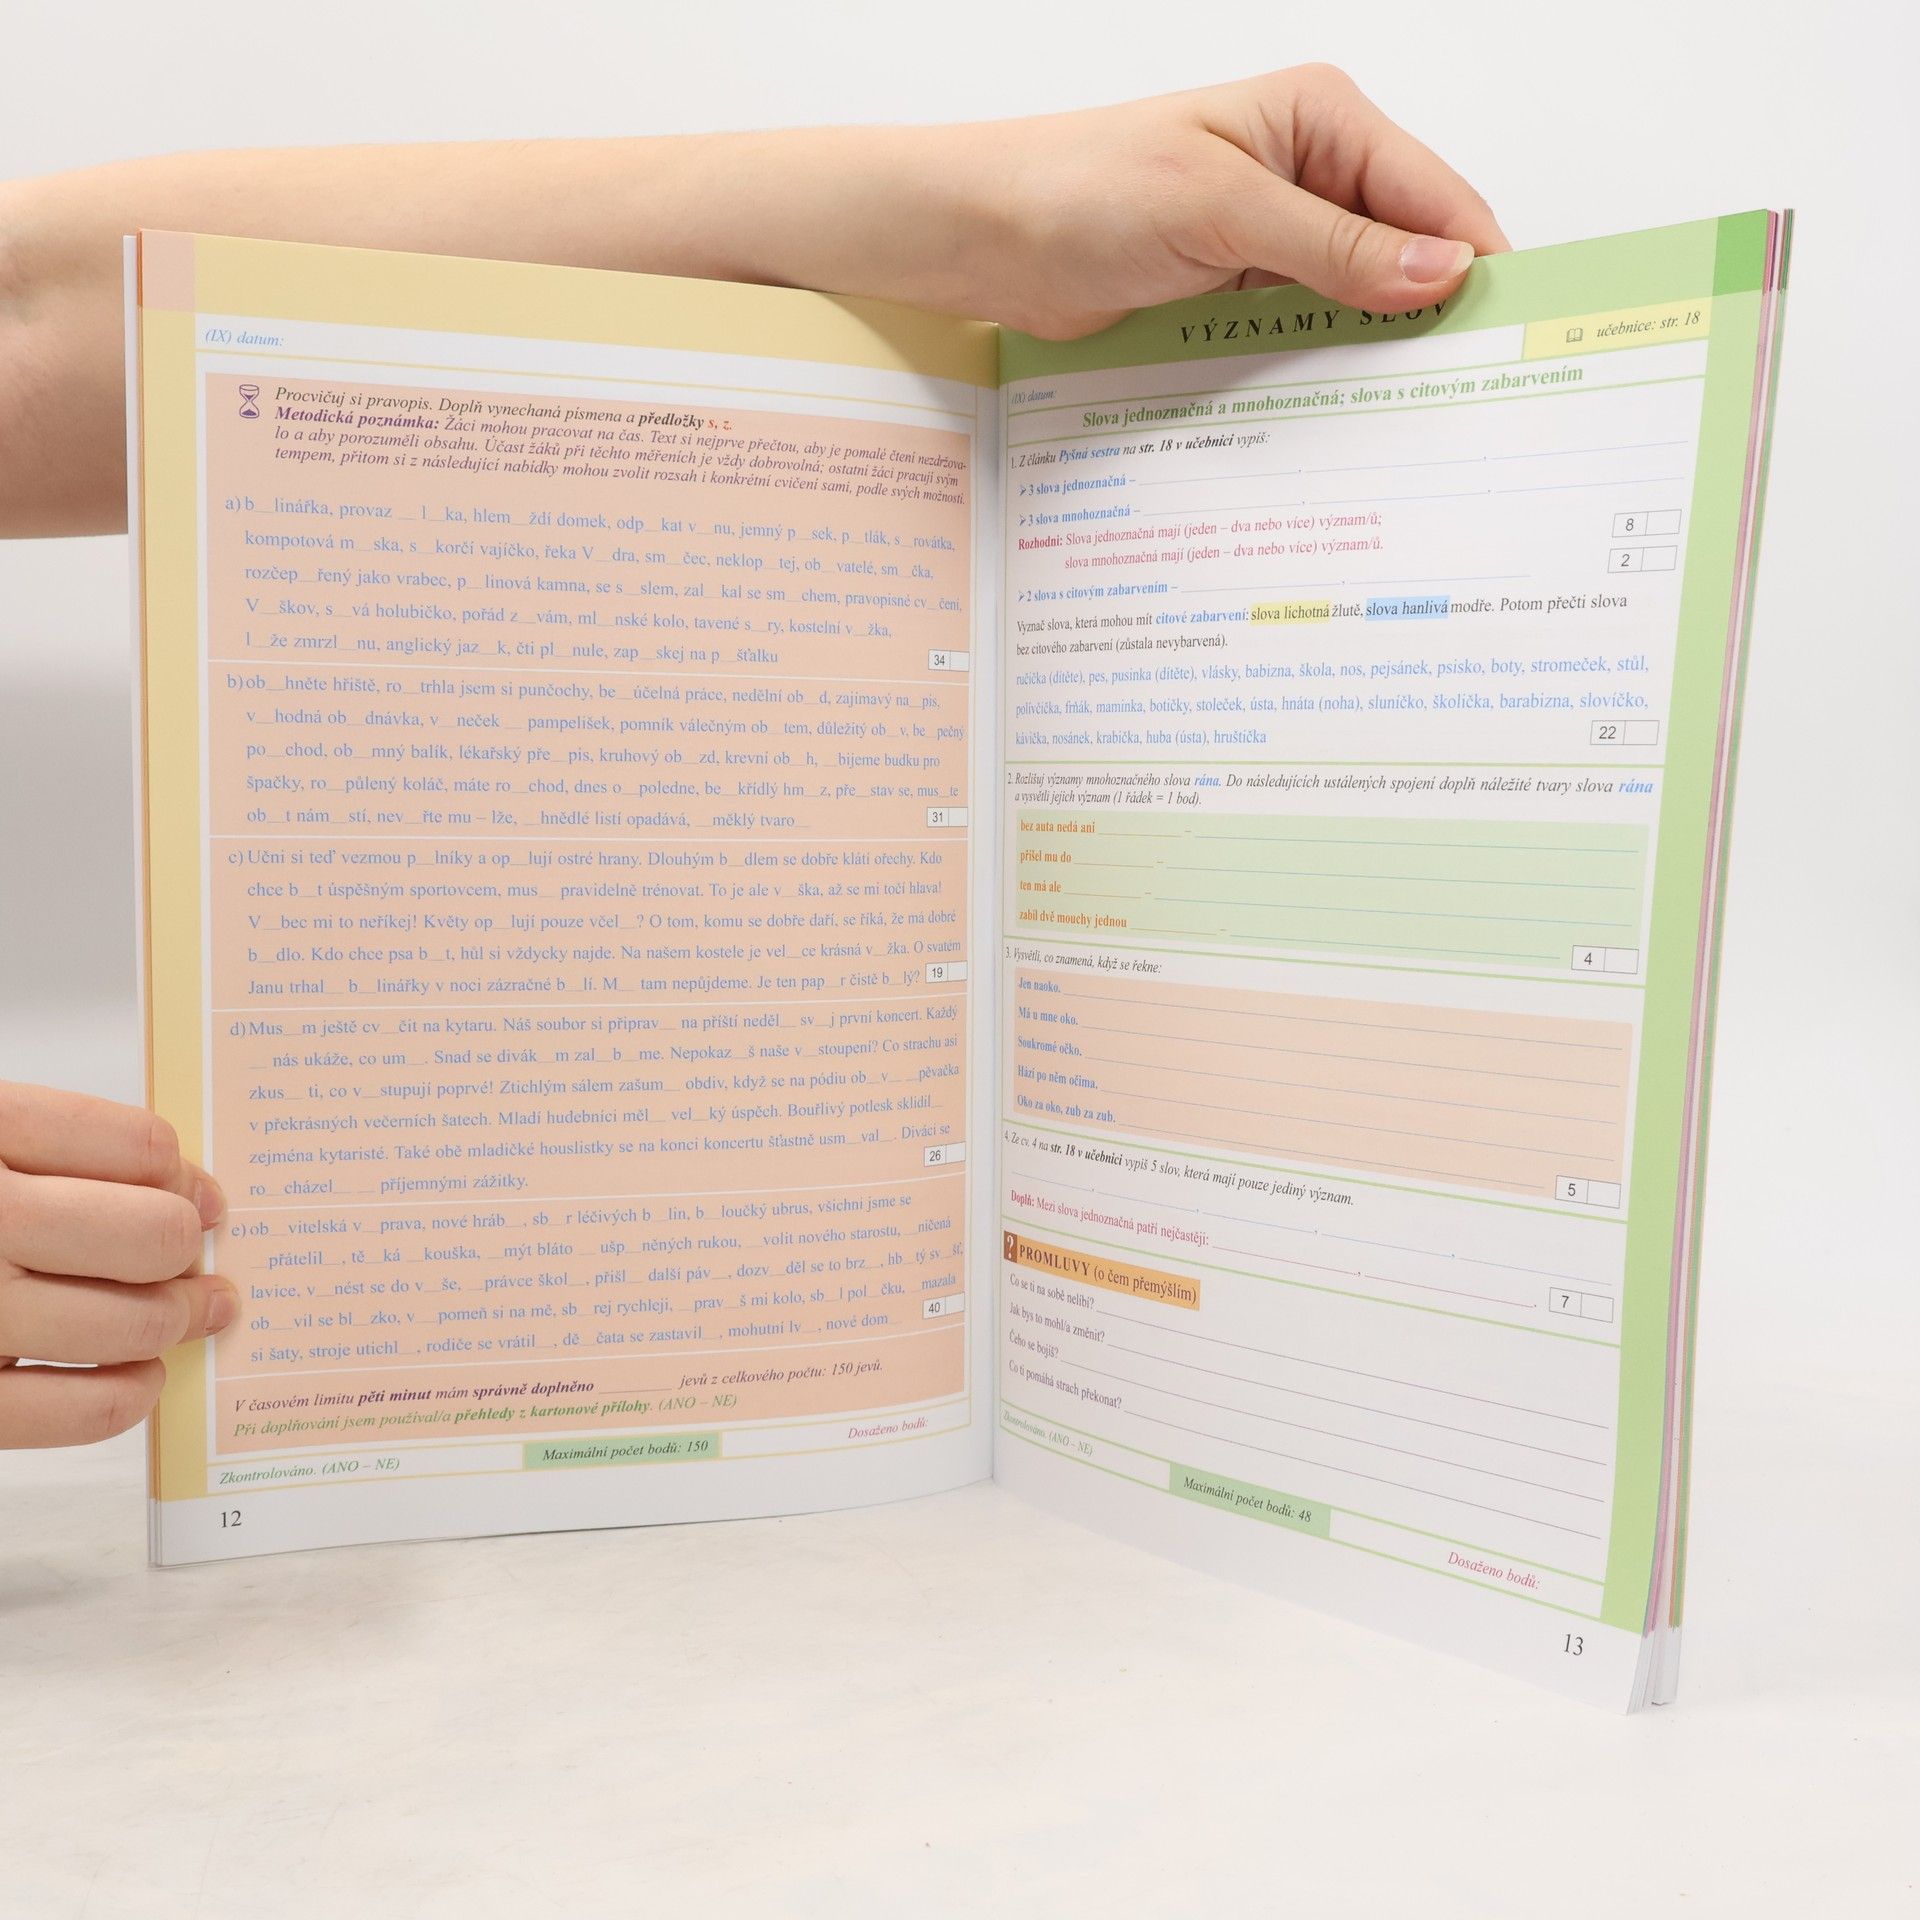 (IX) datum:
Procvičuj si pravopis. Doplň vynechaná písmena a předložky s, z.
Metodická poznámka: Žáci mohou pracovat na čas. Text si nejprve přečtou, aby je pomalé čtení nezdržova-
lo a aby porozuměli obsahu. Účast žáků při těchto měřeních je vždy dobrovolná; ostatní žáci pracují svým
tempem, přitom si z následující nabídky mohou zvolit rozsah i konkrétní cvičení sami, podle svých možností.
a) b__linářka, provaz __ l__ka, hlem__ždí domek, odp__kat v__nu, jemný p__sek, p__tlák, s__rovátka,
kompotová m__ska, s__korčí vajíčko, řeka V__dra, sm__čec, neklop__tej, ob__vatelé, sm__čka,
rozčep__řený jako vrabec, p__linová kamna, se s__slem, zal__kal se sm__chem, pravopisné cv__čení,
V__škov, s__vá holubičko, pořád z__vám, ml__nské kolo, tavené s__ry, kostelní v__žka,
l__že zmrzl__nu, anglický jaz__k, čti pl__nule, zap__skej na p__šťalku
34
b) ob__hněte hřiště, ro__trhla jsem si punčochy, be__účelná práce, nedělní ob__d, zajímavý na__pis,
v__hodná ob__dnávka, v__neček __ pampelišek, pomník válečným ob__tem, důležitý ob__v, be__pečný
po__chod, ob__mný balík, lékařský pře__pis, kruhový ob__zd, krevní ob__h, __bijeme budku pro
špačky, ro__půlený koláč, máte ro__chod, dnes o__poledne, be__křídlý hm__z, pře__stav se, mus__te
ob__t nám__stí, nev__řte mu – lže, __hnědlé listí opadává, __měklý tvaro__
31
c) Učni si teď vezmou p__lníky a op__lují ostré hrany. Dlouhým b__dlem se dobře klátí ořechy. Kdo
chce b__t úspěšným sportovcem, mus__ pravidelně trénovat. To je ale v__ška, až se mi točí hlava!
V__bec mi to neříkej! Květy op__lují pouze včel__? O tom, komu se dobře daří, se říká, že má dobré
b__dlo. Kdo chce psa b__t, hůl si vždycky najde. Na našem kostele je vel__ce krásná v__žka. O svatém
Janu trhal__ b__linářky v noci zázračné b__lí. M__ tam nepůjdeme. Je ten pap__r čistě b__lý?
19
d) Mus__m ještě cv__čit na kytaru. Náš soubor si připrav__ na příští neděl__ sv__j první koncert. Každý
__ nás ukáže, co um__. Snad se divák__m zal__b__me. Nepokaz__š naše v__stoupení? Co strachu asi
zkus__ ti, co v__stupují poprvé! Ztichlým sálem zašum__ obdiv, když se na pódiu ob__v__ __pěvačka
v překrásných večerních šatech. Mladí hudebníci měl__ vel__ký úspěch. Bouřlivý potlesk sklidil__
zejména kytaristé. Také obě mladičké houslistky se na konci koncertu šťastně usm__val__. Diváci se
ro__cházel__ __ příjemnými zážitky.
26
e) ob__vitelská v__prava, nové hráb__, sb__r léčivých b__lin, b__loučký ubrus, všichni jsme se
__přátelil__, tě__ká __kouška, __mýt bláto __ ušp__něných rukou, __volit nového starostu, __ničená
lavice, v__nést se do v__še, __právce škol__, přišl__ další páv__, dozv__děl se to brz__, hb__tý sv__šť,
ob__vil se bl__zko, v__pomeň si na mě, sb__rej rychleji, __prav__š mi kolo, sb__l pol__čku, __mazala
si šaty, stroje utichl__, rodiče se vrátil__, dě__čata se zastavil__, mohutní lv__, nové dom__
40
V časovém limitu pěti minut mám správně doplněno __________ jevů z celkového počtu: 150 jevů.
Při doplňování jsem používal/a přehledy z kartonové přílohy. (ANO – NE)
Zkontrolováno. (ANO – NE)
Maximální počet bodů: 150
Dosaženo bodů:
12
VÝZNAMY SLOV
učebnice: str. 18
(IX) datum:
Slova jednoznačná a mnohoznačná; slova s citovým zabarvením
1. Z článku Pyšná sestra na str. 18 v učebnici vypiš:
➢ 3 slova jednoznačná – __________, __________, __________
➢ 3 slova mnohoznačná – __________, __________, __________
Rozhodni: Slova jednoznačná mají (jeden – dva nebo více) význam/ů;
slova mnohoznačná mají (jeden – dva nebo více) význam/ů.
8
2
➢ 2 slova s citovým zabarvením – __________, __________
Vyznač slova, která mohou mít citové zabarvení: slova lichotná žlutě, slova hanlivá modře. Potom přečti slova
bez citového zabarvení (zůstala nevybarvená).
ručička (dítěte), pes, pusinka (dítěte), vlásky, babizna, škola, nos, pejsánek, psisko, boty, stromeček, stůl,
polívčička, frňák, maminka, botičky, stoleček, ústa, hnáta (noha), sluníčko, školička, barabizna, slovíčko,
kávička, nosánek, krabička, huba (ústa), hruštička
22
2. Rozlišuj významy mnohoznačného slova rána. Do následujících ustálených spojení doplň náležité tvary slova rána
a vysvětli jejich význam (1 řádek = 1 bod).
bez auta nedá ani __________ – __________
přišel mu do __________ – __________
ten má ale __________ – __________
zabil dvě mouchy jednou __________ – __________
4
3. Vysvětli, co znamená, když se řekne:
Jen naoko. __________
Má u mne oko. __________
Soukromé očko. __________
Hází po něm očima. __________
Oko za oko, zub za zub. __________
5
4. Ze cv. 4 na str. 18 v učebnici vypiš 5 slov, která mají pouze jediný význam.
__________, __________, __________, __________, __________
Doplň: Mezi slova jednoznačná patří nejčastěji: __________, __________.
7
? PROMLUVY (o čem přemýšlím)
Co se ti na sobě nelíbí? __________
Jak bys to mohl/a změnit? __________
Čeho se bojíš? __________
Co ti pomáhá strach překonat? __________
Zkontrolováno. (ANO – NE)
Maximální počet bodů: 48
Dosaženo bodů:
13